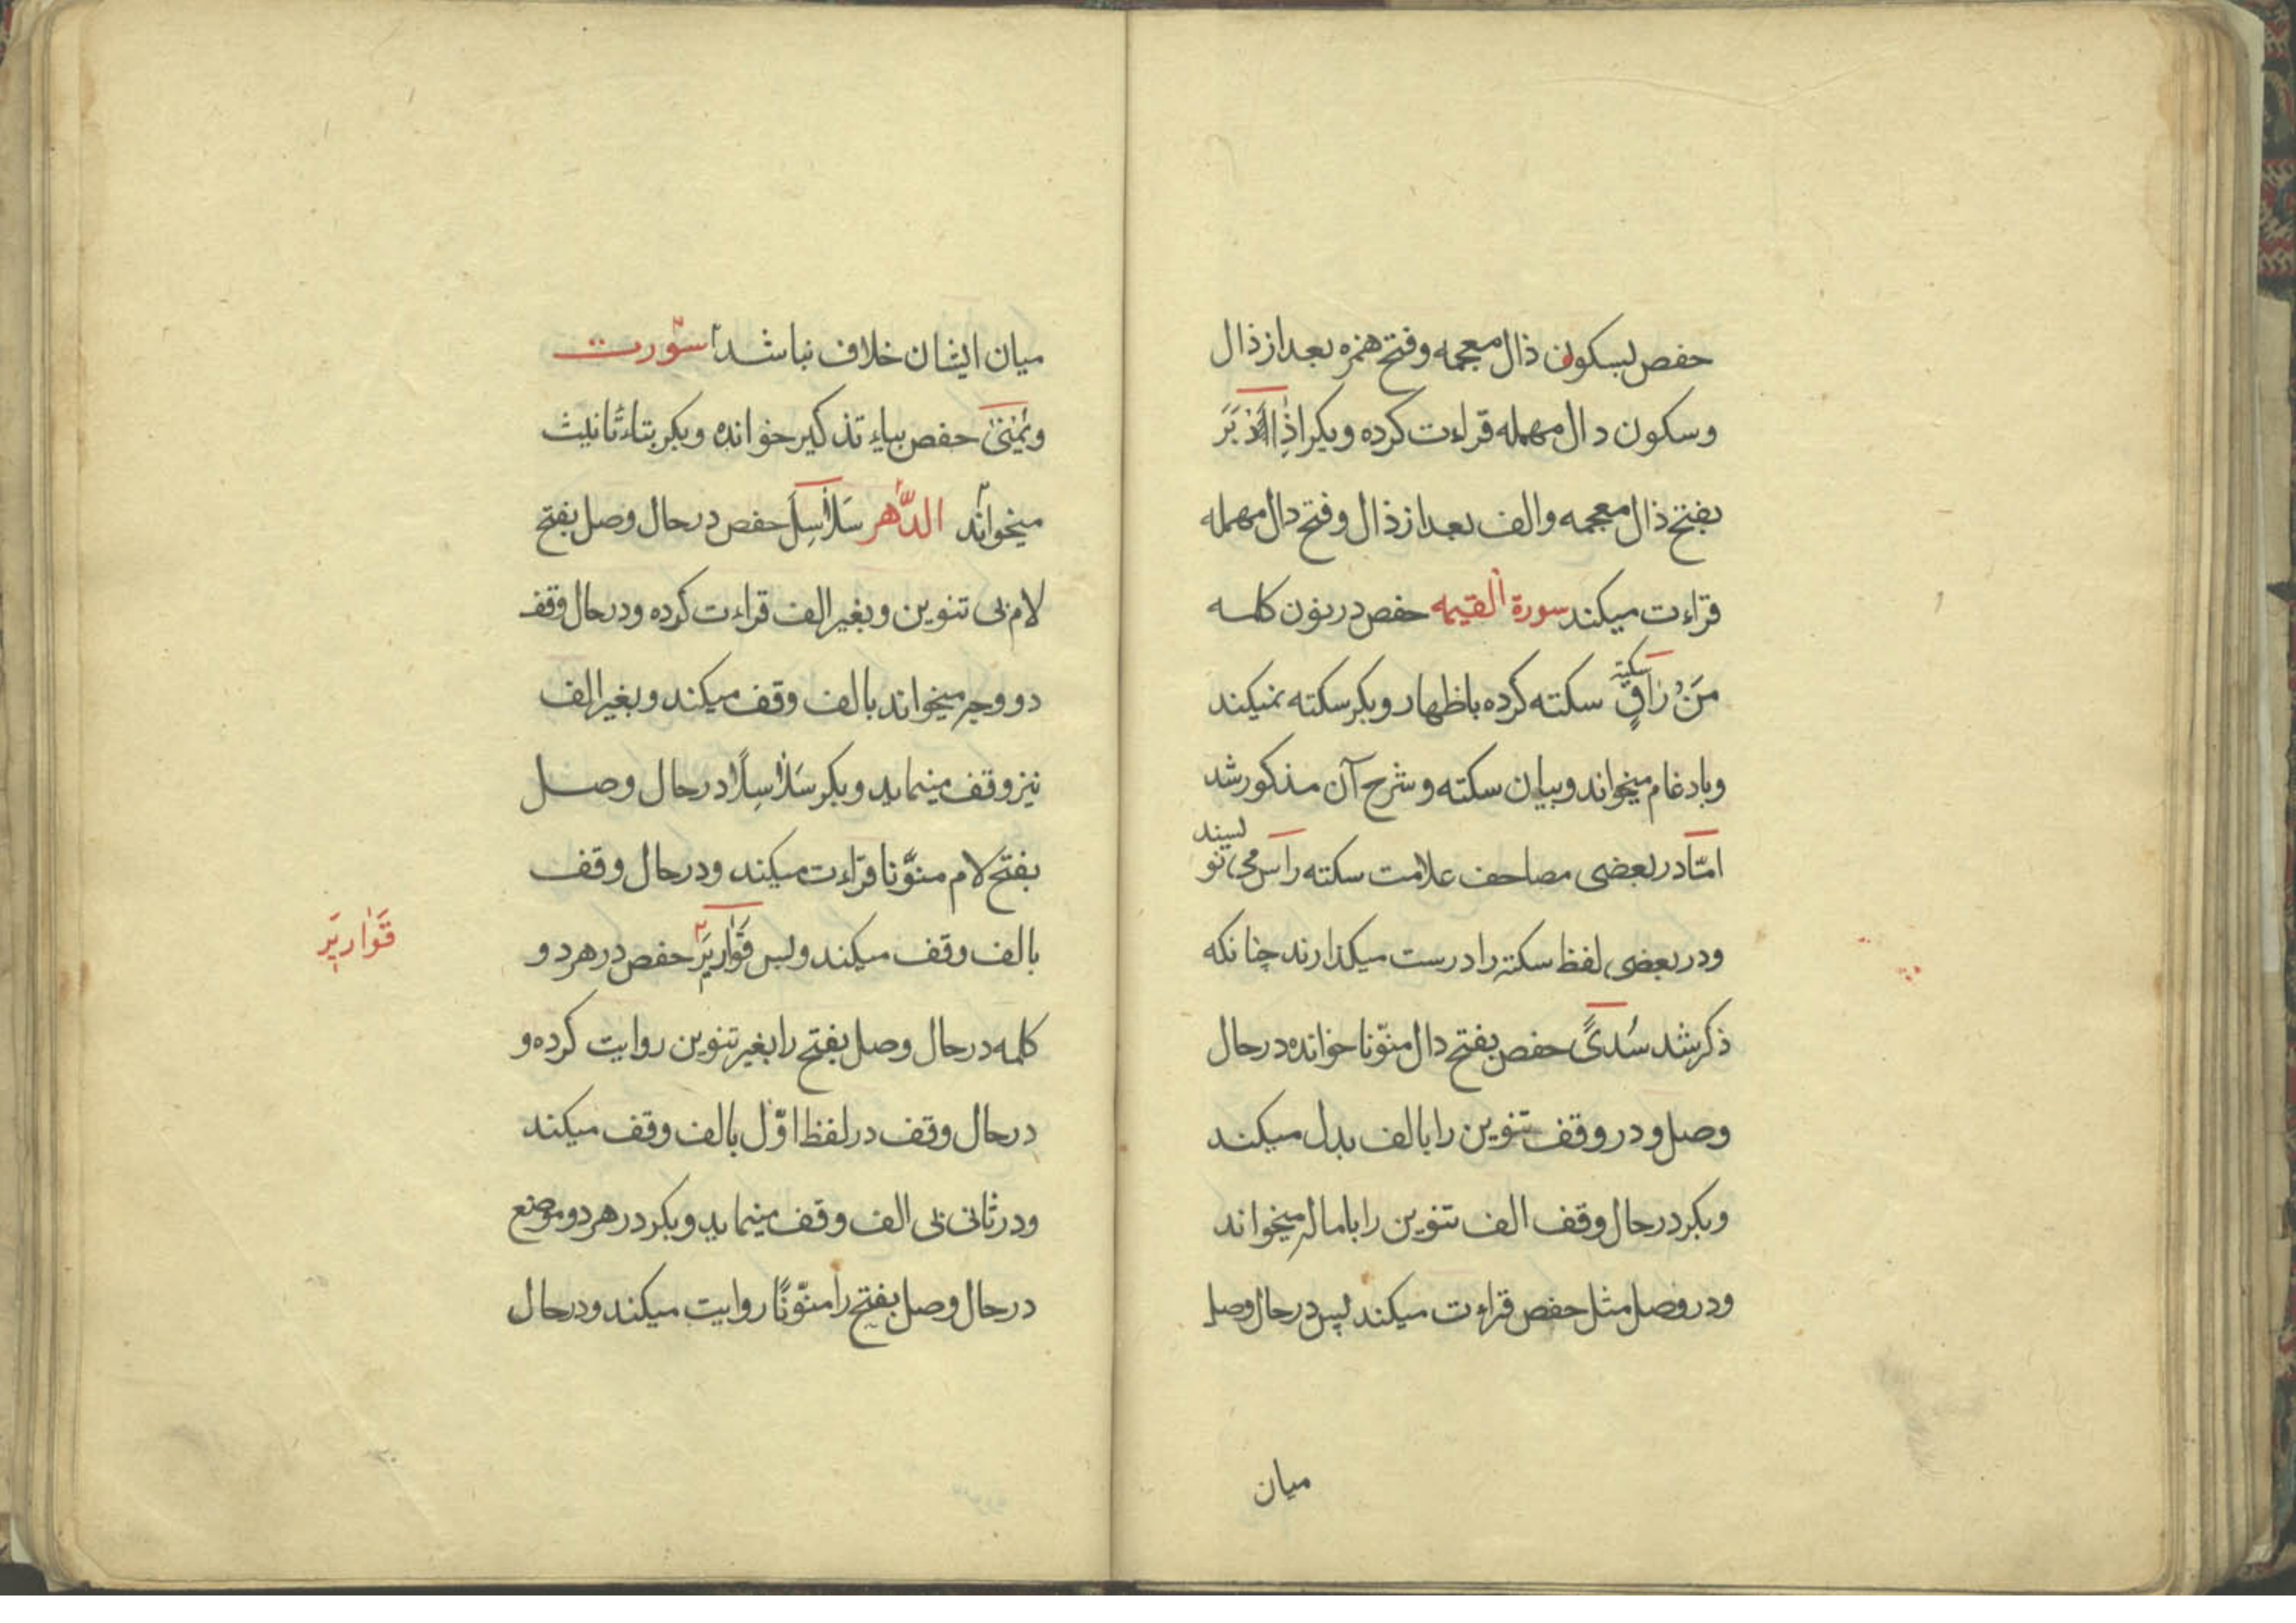 حفص بسکون ذال معجمه و فتح همزه بعد از ذال
و سکون دال مهمله قراءت کرده و بکر اذا دَبَرَ
بفتح ذال معجمه و الف بعد از ذال و فتح دال مهمله
قراءت میکند سورة القیمه حفص در نون کلمه
مَنْ رَاقٍ سکته سکته کرده باظهار و بکر سکته نمیکند
و بادغام میخواند و بیان سکته و شرح آن مذکور شد
امّا در بعضی مصاحف علامت سکته را س می نویسند
و در بعضی لفظ سکته را درست میکذارند چنانکه
ذکر شد سُدیً حفص بفتح دال منوّنا خوانده در حال
وصل و در وقف تنوین را بالف بدل میکند
و بکر در حال وقف الف تنوین را باماله میخواند
و در وصل مثل حفص قراءت میکند پس در حال وصل
میان
میان ایشان خلاف نباشد سورت
و یُمْنیٰ حفص بیاء تذکیر خوانده و بکر بتاء تأنیث
میخواند الدَّهر سَلٰاسِلَ حفص در حال وصل بفتح
لام بی تنوین و بغیر الف قراءت کرده و در حال وقف
دو وجه میخواند بالف وقف میکند و بغیر الف
نیز وقف مینماید و بکر سَلٰاسِلاً در حال وصل
بفتح لام منوَّنا قراءت میکند و در حال وقف
بالف وقف میکند و لیس قَوٰاریرَ حفص در هر دو
قَوٰاریرَ
کلمه در حال وصل بفتح را بغیر تنوین روایت کرده و
در حال وقف در لفظ اوّل بالف وقف میکند
و در ثانی بی الف وقف مینماید و بکر در هر دو موضع
در حال وصل بفتح را منوّنًا روایت میکند و در حال